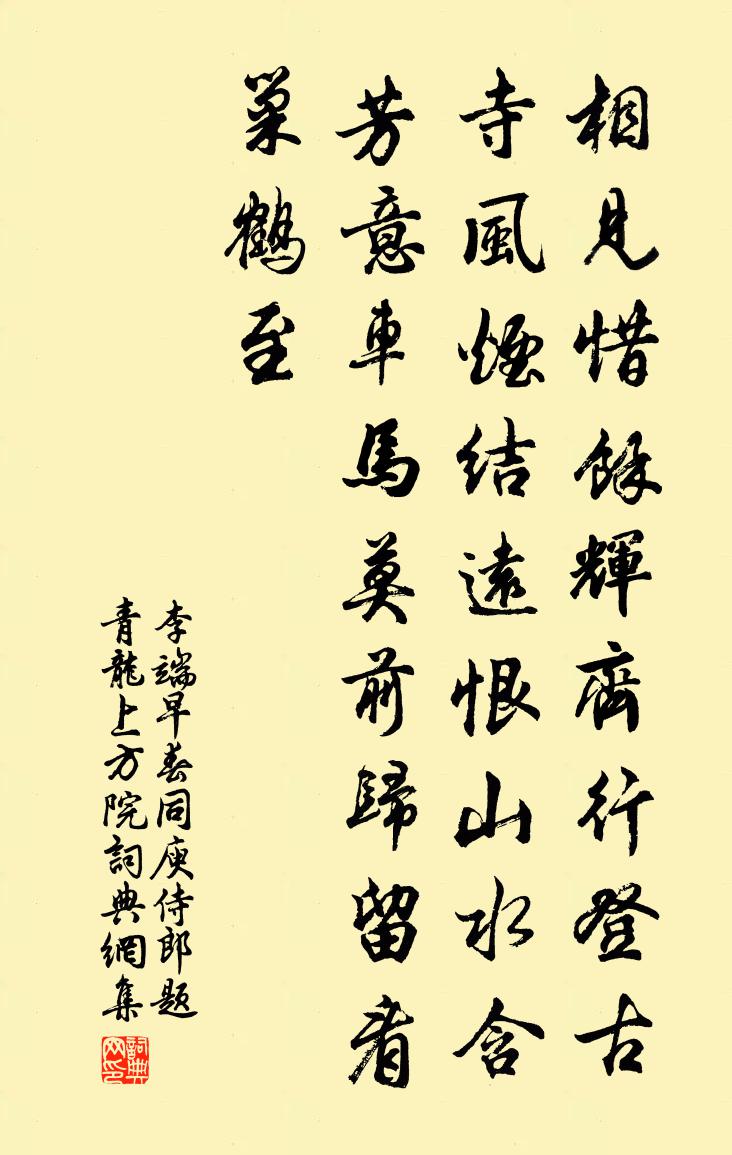 相見惜餘輝齊行登古
寺風煙結遠恨山水含
芳意車馬莫前歸留看
巢鶴至
李端早春同庾侍郎題
青龍上方院詞典網集
詞典网印